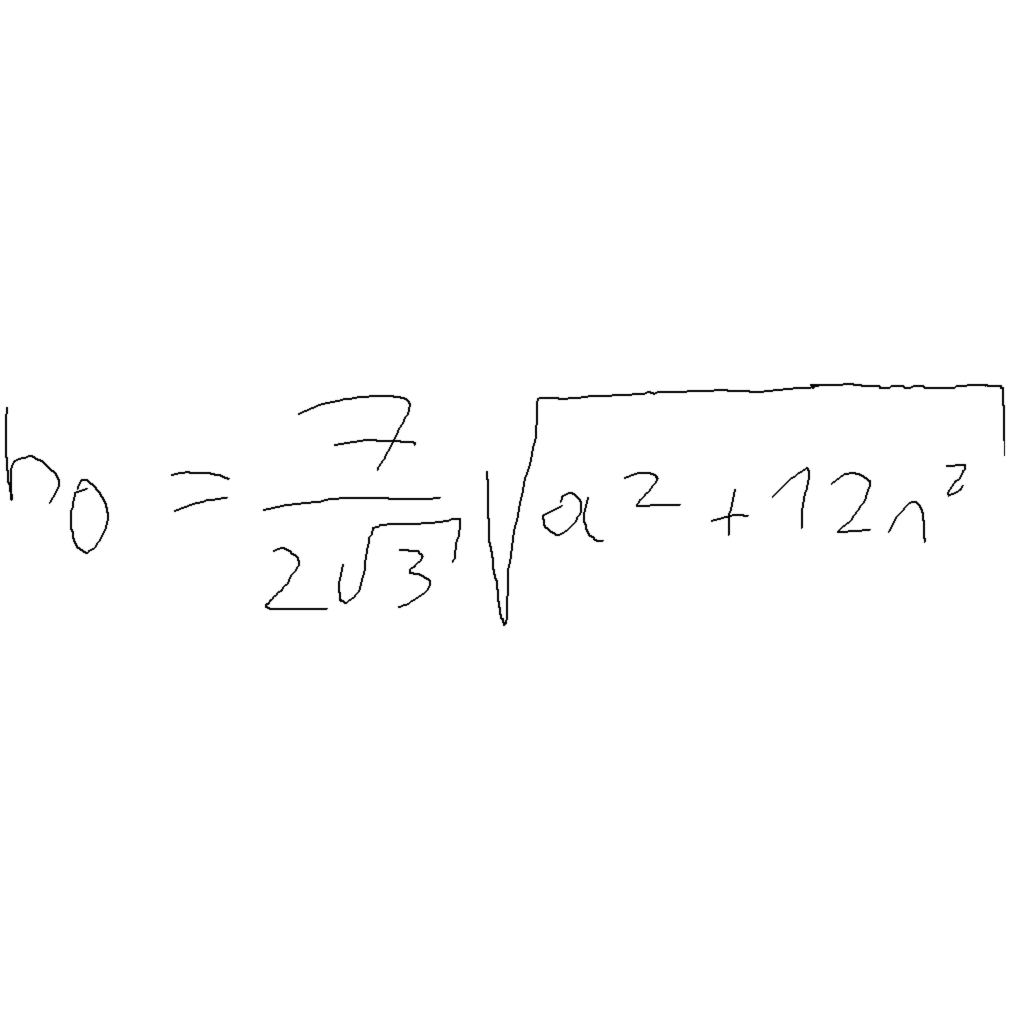 h_0 = \frac{7}{2\sqrt{3}} \sqrt{a^2 + 12n^2}